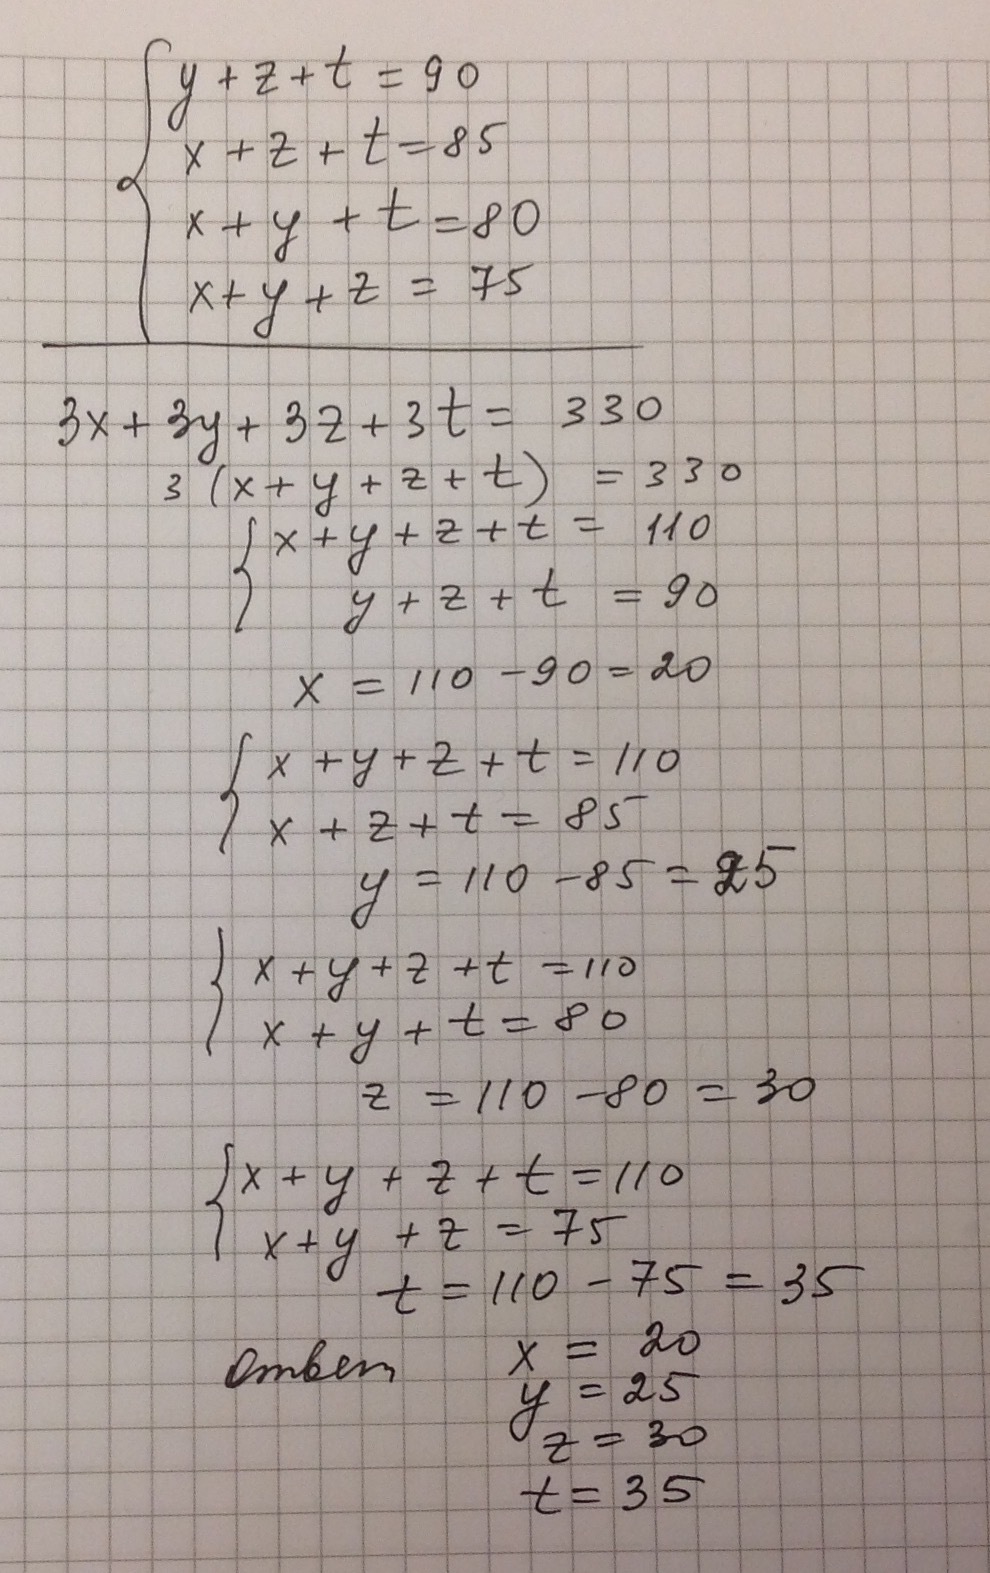 y + z + t = 90
x + z + t = 85
x + y + t = 80
x + y + z = 75
3x + 3y + 3z + 3t = 330
3 (x + y + z + t) = 330
x + y + z + t = 110
y + z + t = 90
x = 110 - 90 = 20
x + y + z + t = 110
x + z + t = 85
y = 110 - 85 = 25
x + y + z + t = 110
x + y + t = 80
z = 110 - 80 = 30
x + y + z + t = 110
x + y + z = 75
t = 110 - 75 = 35
Ответ x = 20
y = 25
z = 30
t = 35